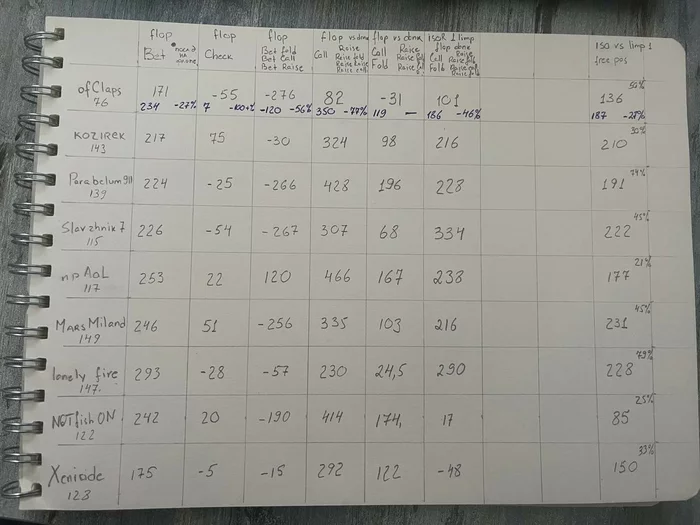 flop flop flop flop vs donk flop vs donk ISOR 1 limp ISO vs limp 1
Bet Check Bet fold Call Raise Call Raise flop donk free pos
Bet Call Raise fold Fold Raise fold Call Raise
Bet Raise Fold
ofClaps 171 -55 -276 82 -31 101 136 50%
76 234 -27% 7 -100+% -120 -56% 350 -77% 119 — 186 -46% 187 -28%
KOZIREK 217 75 -30 324 98 216 210 30%
143
Parabellum911 224 -25 -266 428 196 228 191
139
Slavzhnik7 226 -54 -267 307 68 334 222 45%
115
npAoL 253 22 120 466 167 238 177 21%
117
MARSMiland 246 51 -256 335 103 216 231 45%
149
lonely fire 293 -28 -57 230 24,5 290 228 79%
147.
NOTfishON 242 20 -190 414 174, 17 85 25%
122
Xenioide 175 -5 -15 292 122 -48 150 33%
123